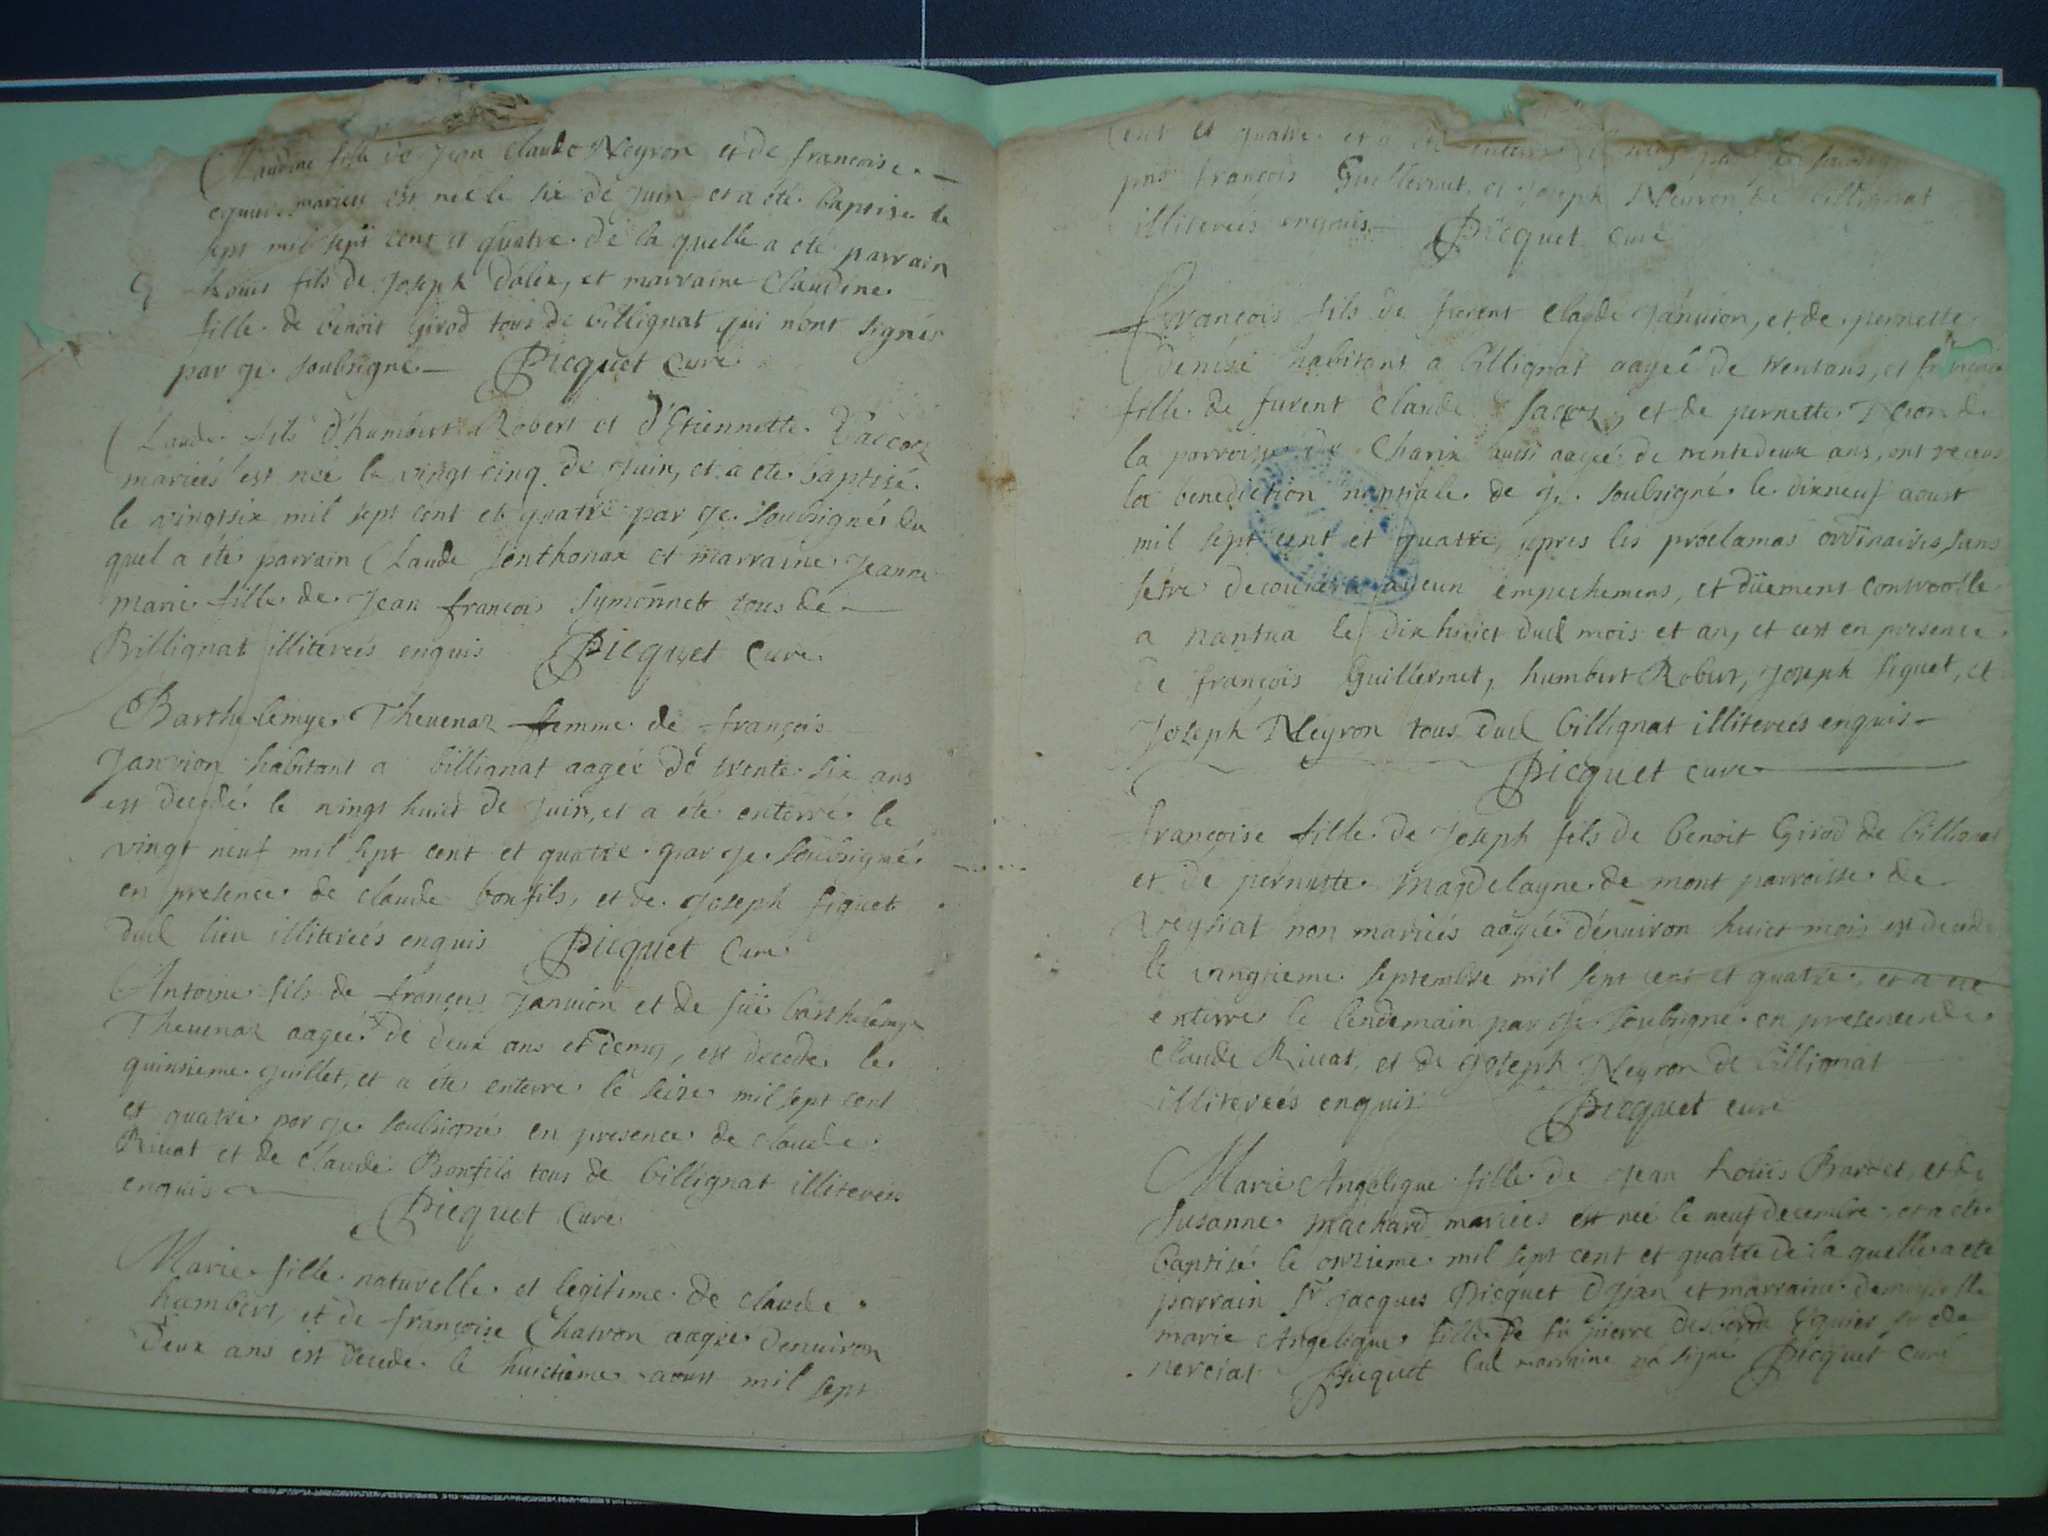 Claudine fille de Jean Claude Neyron et de francoise
mariez est neé le six de Juin et a été baptisé le
sept mil sept cent et quatre de la quelle a eté parrain
Louis fils de Joseph Dalex, et marraine Claudine
fille de benoit Girod tous de billignat qui nont signés
par je soubsigné Picquet curé
Claude fils d'humbert Robert et d'Etiennette
mariéés est neé le vingt cinq de Juin, et a eté baptisé
le vingtsix mil sept cent et quatre par je soubsigné du
quel a été parrain Claude Senthonax et marraine Jeanne
marie fille de Jean francois Symonnet tous de
Billignat illitereés enquis Picquet Curé
Barthelemye Thevenaz femme de françois
Janvion habitant a billignat aageé de trente six ans
est decedé le vingt huict de Juin, et a été enterré le
vingt neuf mil sept cent et quatre par je soubsigné
en presence de claude bonfils, et de Joseph figuet
dud lieu illitereés enquis Picquet Curé
Antoine fils de françois Janvion et de fuë barthelemye
Thevenaz aageé de deux ans et demy, est decedé le
quinsieme Juillet, et a été enterré le seize mil sept cent
et quatre par je soubsigné en presence de claude
Rivat et de Claude Bonfils tous de billignat illitereés
enquis Picquet Curé
Marie fille naturelle et legitime de claude
humbert, et de françoise Chatron aageé denuiron
deux ans est decedé le huictieme aoust mil sept
cent et quatre et a été enterré
françois Guillermet et Joseph Neyron de billignat
illitereés enquis Picquet Curé
François fils de fuvent Claude Janvion, et de pernette
Denise habitant a billignat aageé de trentans, et
fille de fuvent Claude Jacoz, et de pernette
la parroisse de Charix aussi aageé de trentedeux ans, ont receus
la benediction nuptiale de je soubsigné le dixneuf aoust
mil sept cent et quatre, apres les proclamas ordinaires sans
sétre decouvert aucun empechemens, et düement controolle
a nantua le dix huict dud mois et an, et cest en presence
de françois Guillermet, humbert Robert, Joseph figuet, et
Joseph Neyron tous dud billignat illitereés enquis
Picquet curé
françoise fille de Joseph fils de benoit Girod de billignat
et de pernette Magdelayne de mont parroisse de
Veyziat non mariés aageé dénuiron huict mois est decedé
le vingtieme septembre mil sept cent et quatre, et a eté
enterré le lendemain par je soubsigné en presence de
Claude Rivat, et de Joseph Neyron de billignat
illitereés enquis Picquet curé
Marie Angelique fille de Jean Loüis Bardet, et de
Susanne Machard mariees est neé le neuf decembre et a eté
baptisé le onzieme mil sept cent et quatre de la quelle a eté
parrain Sr Jacques Picquet et marraine demoyselle
marie Angelique fille de
nerciat Picquet lad marraine na signé Picquet Curé